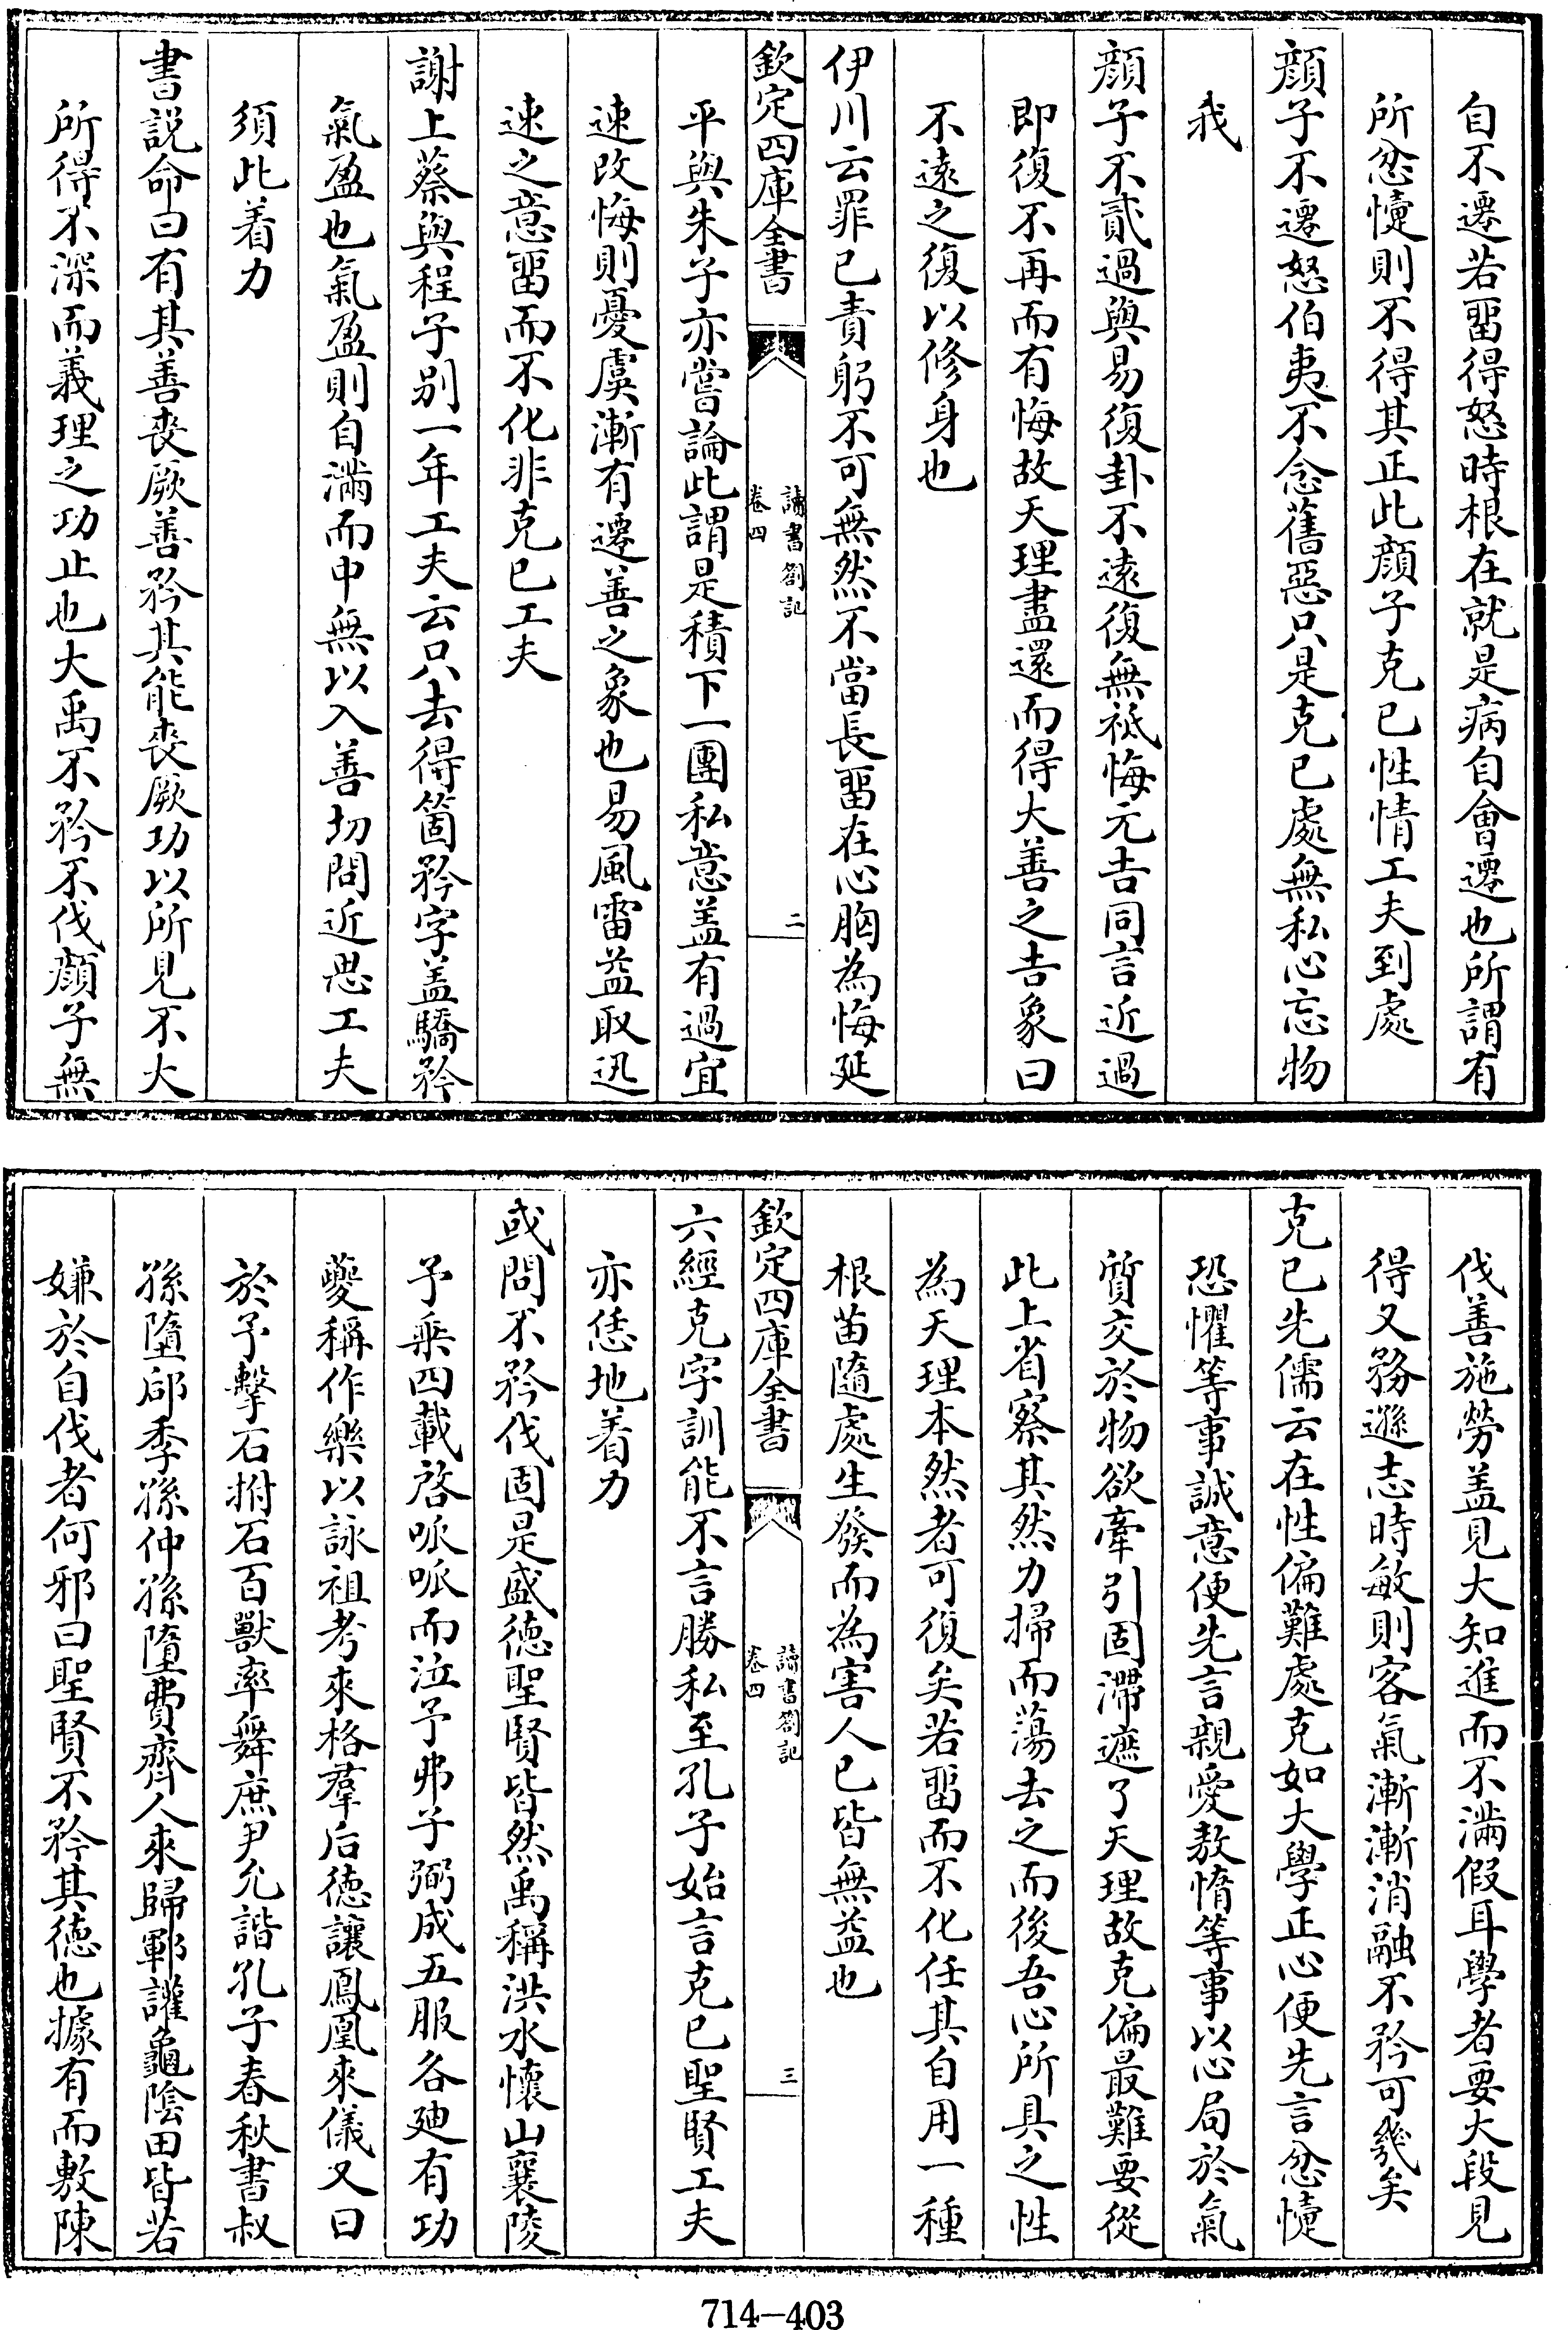 自不遷若畱得怒時根在就是病自會遷也所謂有
所忿懥則不得其正此顔子克已性情工夫到處
顔子不遷怒伯夷不念舊惡只是克已處無私心忘物
我
顔子不貳過與易復卦不遠復無祗悔元吉同言近過
即復不再而有悔故天理盡還而得大善之吉象曰
不遠之復以修身也
伊川云罪已責躬不可無然不當長畱在心胸為悔延
欽定四庫全書
讀書劄記
卷四
二
平與朱子亦嘗論此謂是積下一團私意盖有過宜
速改悔則憂虞漸有遷善之象也易風雷益取迅
速之意畱而不化非克已工夫
謝上蔡與程子别一年工夫云只去得箇矜字盖驕矜
氣盈也氣盈則自滿而中無以入善切問近思工夫
須此着力
書説命曰有其善喪厥善矜其能喪厥功以所見不大
所得不深而義理之功止也大禹不矜不伐顔子無
伐善施勞盖見大知進而不滿假耳學者要大段見
得又務遜志時敏則客氣漸漸消融不矜可幾矣
克已先儒云在性偏難處克如大學正心便先言忿懥
恐懼等事誠意便先言親愛敖惰等事以心局於氣
質交於物欲牽引固滯遮了天理故克偏最難要從
此上省察其然力掃而蕩去之而後吾心所具之性
為天理本然者可復矣若畱而不化任其自用一種
根苗隨處生發而為害人已皆無益也
欽定四庫全書
讀書劄記
卷四
三
六經克字訓能不言勝私至孔子始言克已聖賢工夫
亦恁地着力
或問不矜伐固是盛徳聖賢皆然禹稱洪水懷山襄陵
予乘四載啓呱呱而泣予弗子弼成五服各廸有功
夔稱作樂以詠祖考來格羣后徳讓鳳凰來儀又曰
於予擊石拊石百獸率舞庶尹允諧孔子春秋書叔
孫墮郈季孫仲孫墮費齊人來歸鄆讙龜陰田皆若
嫌於自伐者何邪曰聖賢不矜其徳也據有而敷陳
714-403